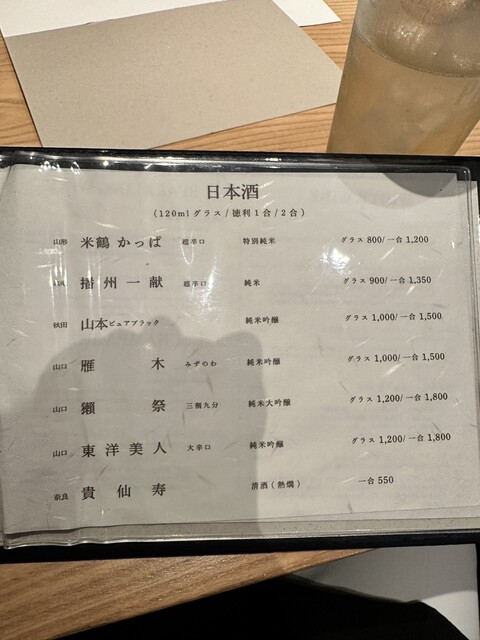 日本酒
(120mlグラス/徳利1合/2合)
山形 米鶴 かっぱ 超辛口 特別純米 グラス 800/一合 1,200
播州一献 超辛口 純米 グラス 900/一合 1,350
秋田 山本ピュアブラック 純米吟醸 グラス 1,000/一合 1,500
山口 雁木 みずのわ 純米吟醸 グラス 1,000/一合 1,500
山口 獺祭 三割九分 純米大吟醸 グラス 1,200/一合 1,800
山口 東洋美人 大辛口 純米吟醸 グラス 1,200/一合 1,800
奈良 貴仙寿 清酒(熱燗) 一合 550